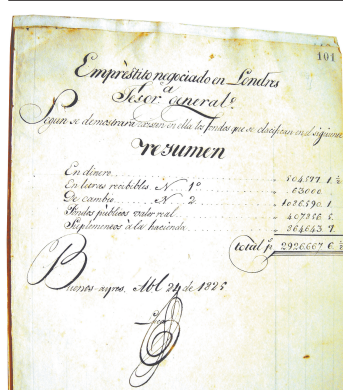 101
Empréstito negociado en Londres
a
Tesor. General.
Segun se demostrará existen en ella los fondos que se clasifican en el siguiente
resumen
En dinero 504577. 1. ½
En letras recibibles N. 1º 63000
De cambio N. 2 1086590. 1.
Fondos publicos valor real 407256 5.
Suplementos a la hacienda 864643. 7.
total p. 2926667 6. ½
Buenos-ayres, Abl 24 de 1825